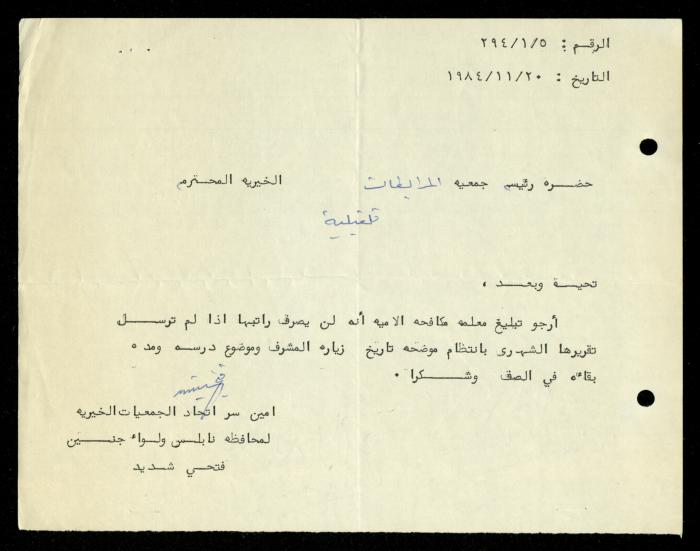 الرقم : ٢٩٤/١/٥
التاريخ : ١٩٨٤/١١/٢٠
حضره رئيس جمعيه المرابطات الخيريه المحترم
قلقيلية
تحية وبعد ،
أرجو تبليغ معلمه مكافحه الاميه أنه لن يصرف راتبها اذا لم ترسل
تقريرها الشهرى بانتظام موضحه تاريخ زياره المشرف وموضوع درسه ومده
بقاءه في الصف وشكرا ٠
امين سر اتحاد الجمعيات الخيريه
لمحافظه نابلس ولواء جنين
فتحي شديد